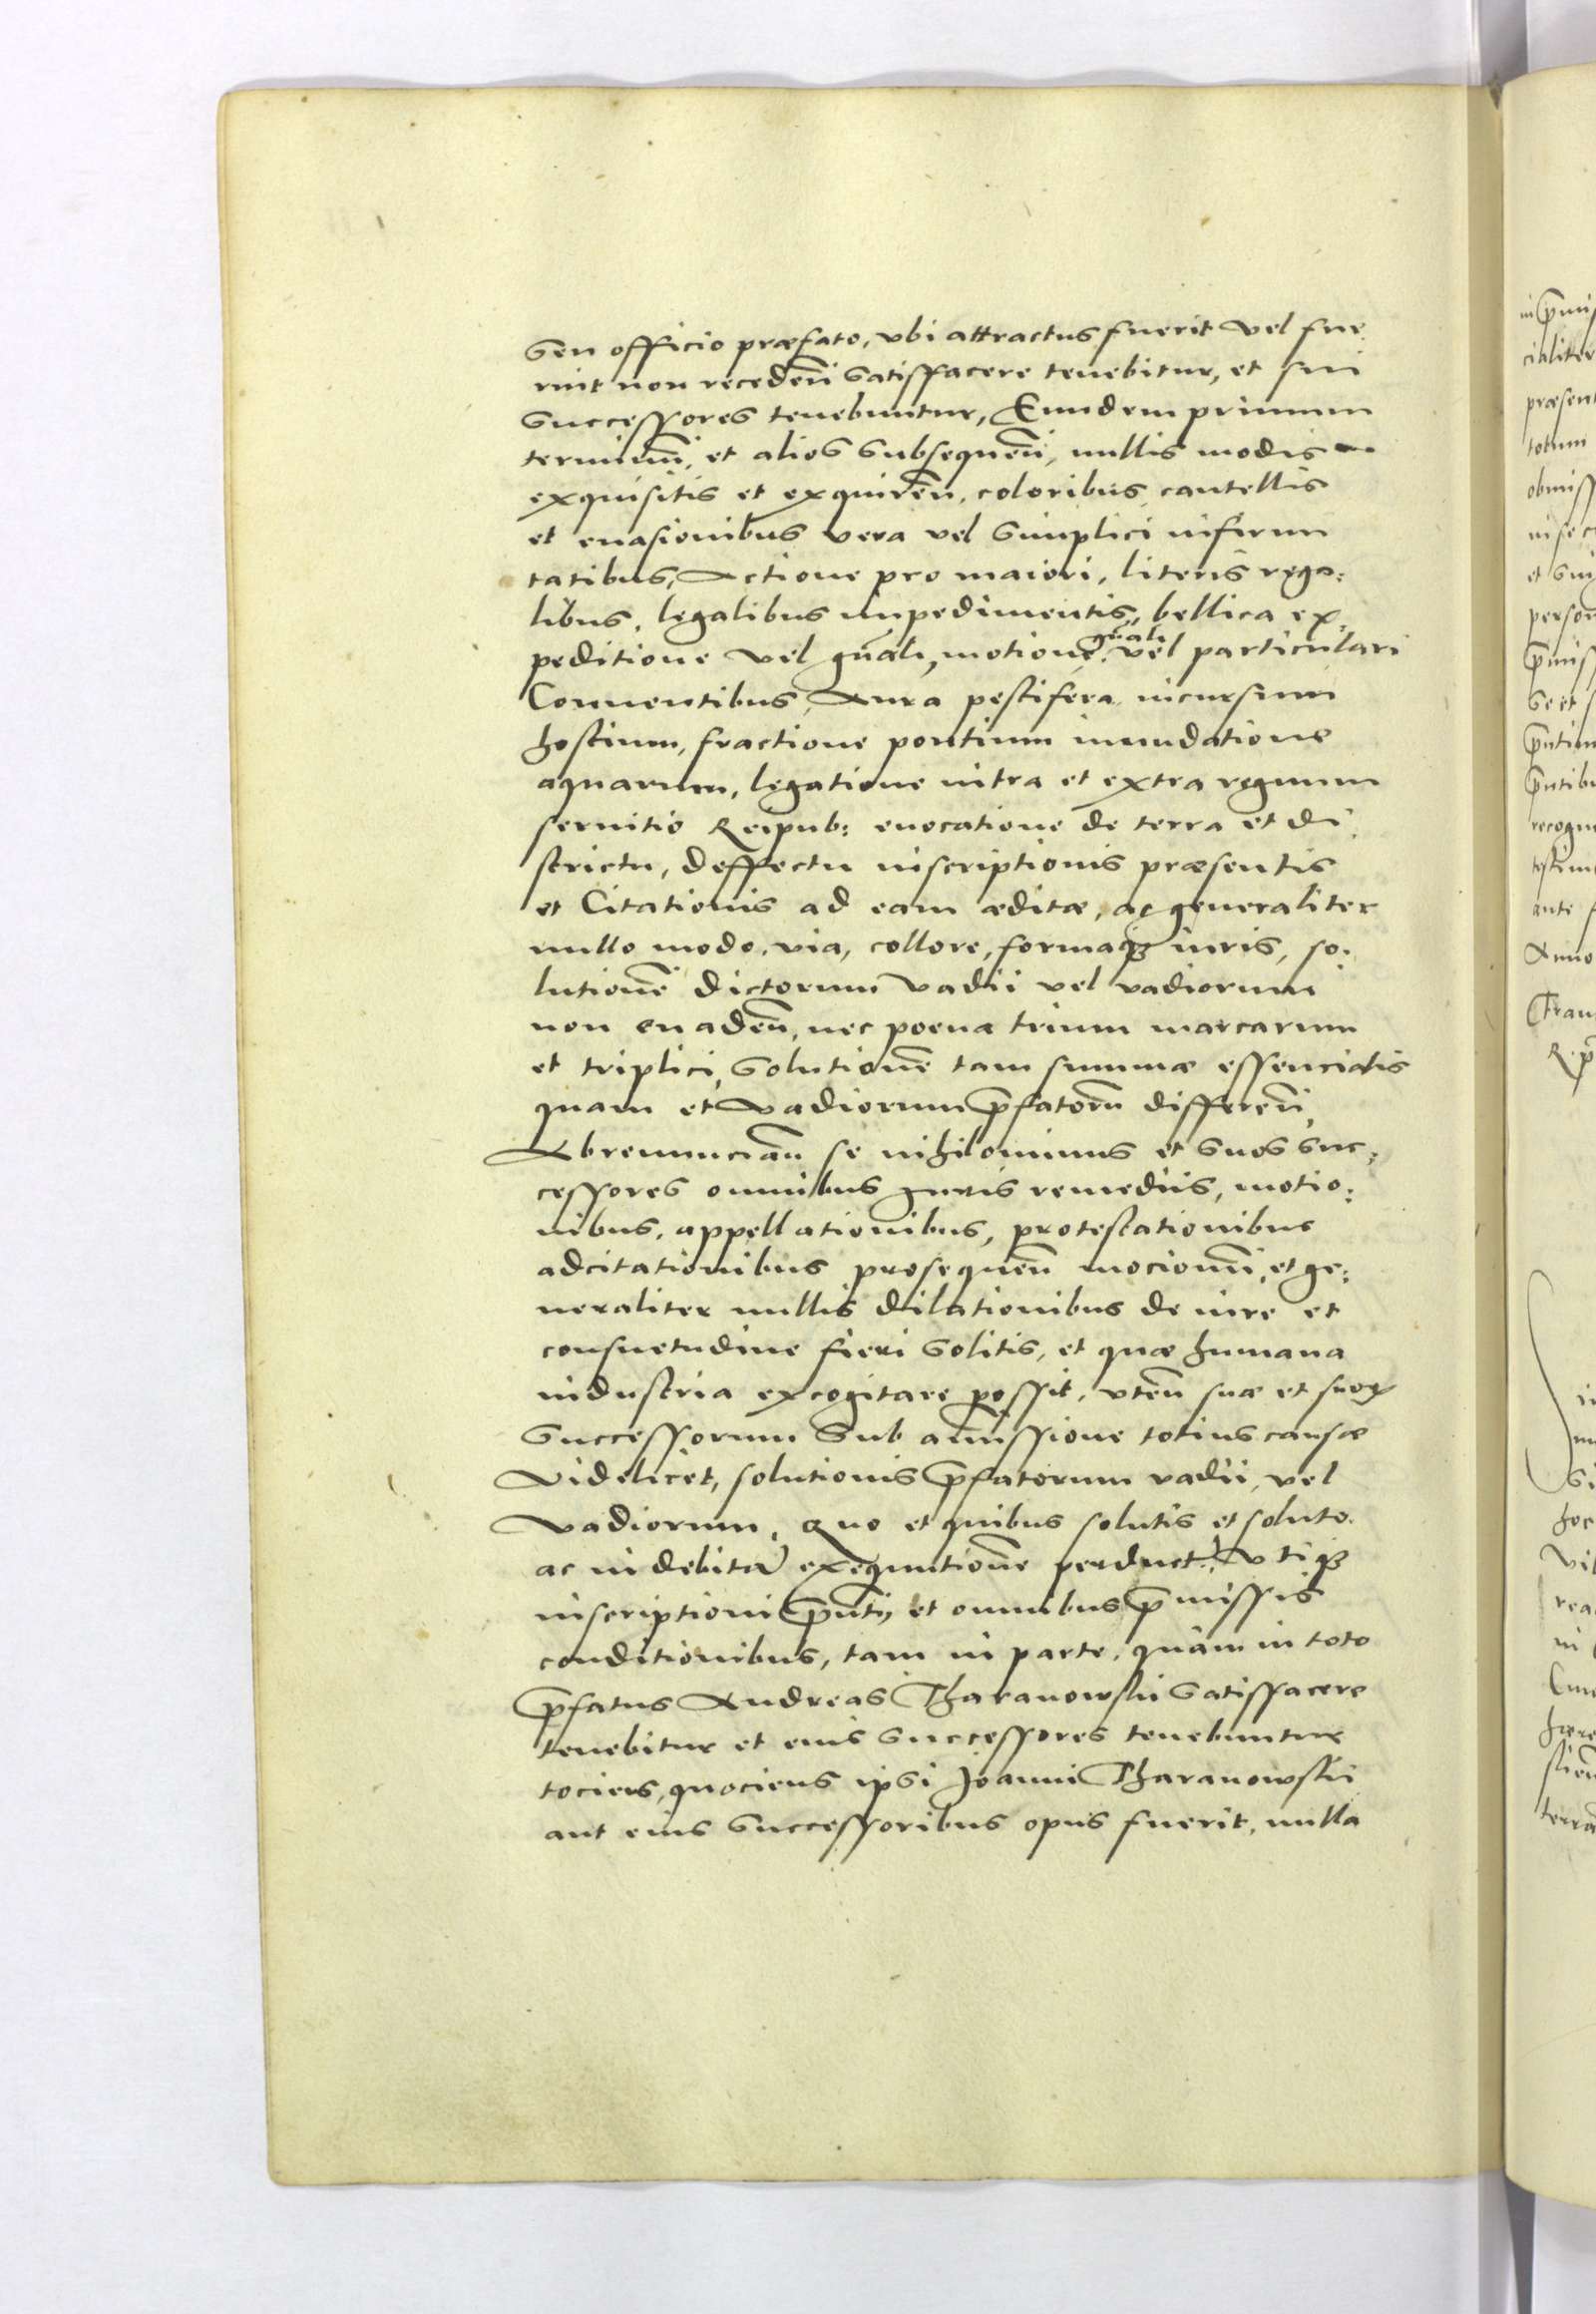 seu officio præfato, vbi attractus fuerit vel fue
rint non receden̄ satisfacere tenebitur, et sui
successores tenebuntur, Eundem primum
terminum̄, et alios subsequen̄, nullis modis
exquisitis et exquiren̄, coloribus cautellis
et euasionibus vera vel simplici infirmi
tatibus, Actione pro maiori, literis rega:
libus, legalibus impedimentis, bellica ex
peditione vel gn̄ali, motione gn̄ali vel particulari
Conuentibus, Aura pestifera incursum
hostium, fractione pontium inundatione
aquarum, legatione intra et extra regnum
seruitio Reipub: euocatione de terra et di
strictu, deffectu inscriptionis præsentis
et Citationis ad eam æditæ, ac generaliter
nullo modo, via, collore, formaqȝ iuris, so:
lutionē dictorum vadii vel vadiorum
non euaden̄, nec poena trium marcarum
et triplici, solutionē tam summæ essencialis
quam et vadiorum p̄fatorū differen̄,
Abrenuncian̄ se nihilominus et suos suc:
cessores omnibus iuris remediis, motio:
nibus, appellationibus, protestationibus
adcitationibus prosequen̄ mocionū, et ge:
neraliter nullis dilationibus de iure et
consuetudine fieri solitis, et quæ humana
industria excogitare possit, vten̄ suæ et suoꝝ
successorum Sub amissione totius causæ
Videlicet, solutionis p̄fatorum vadii, vel
vadiorum, Quo et quibus solutis et soluto
ac in debitā exequutionē perduct: vtiqȝ
inscriptioni p̄nti, et omnibus p̄missis
conditionibus, tam in parte, quàm in toto
p̄fatus Andreas Tharanowski satisfacere
tenebitur et eius successores tenebuntur
tociens, quociens ipsi Joanni Tharanowski
aut eius successoribus opus fuerit, nulla